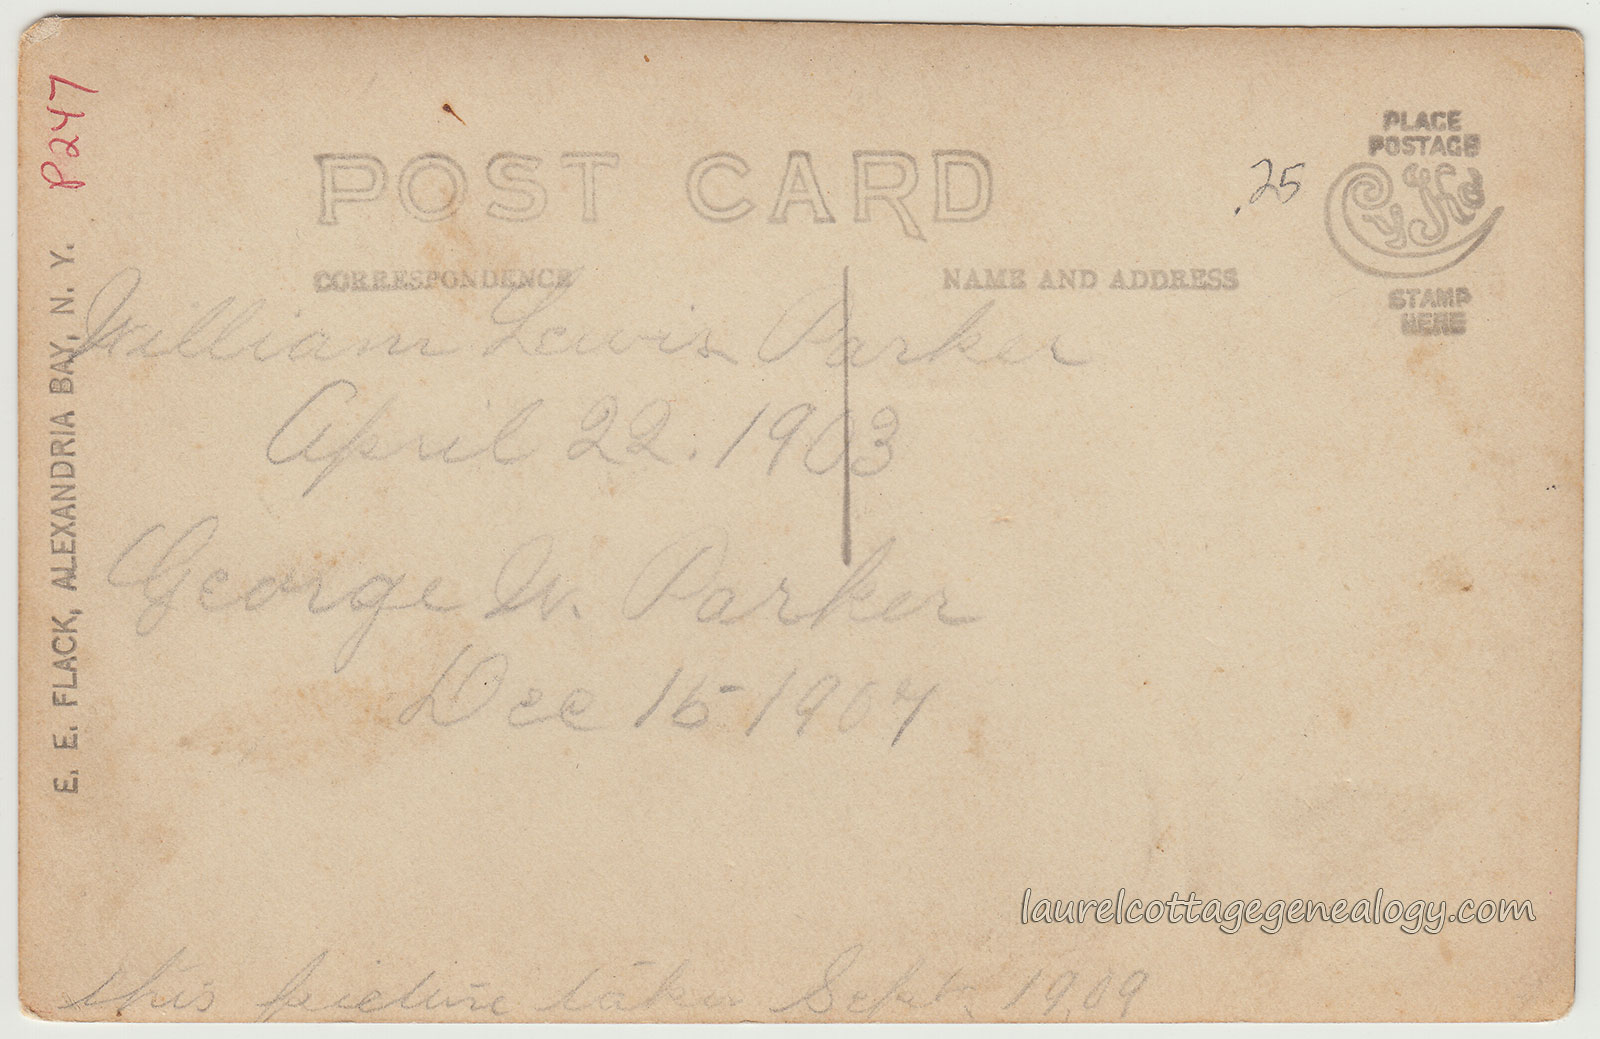 P247
E. E. FLACK, ALEXANDRIA BAY, N. Y.
POST CARD
.25
PLACE
POSTAGE
CyKo
STAMP
HERE
CORRESPONDENCE
NAME AND ADDRESS
William Lewis Parker
April 22. 1903
George W. Parker
Dec 15 1904
laurelcottagegenealogy.com
this picture taken Sept. 1909